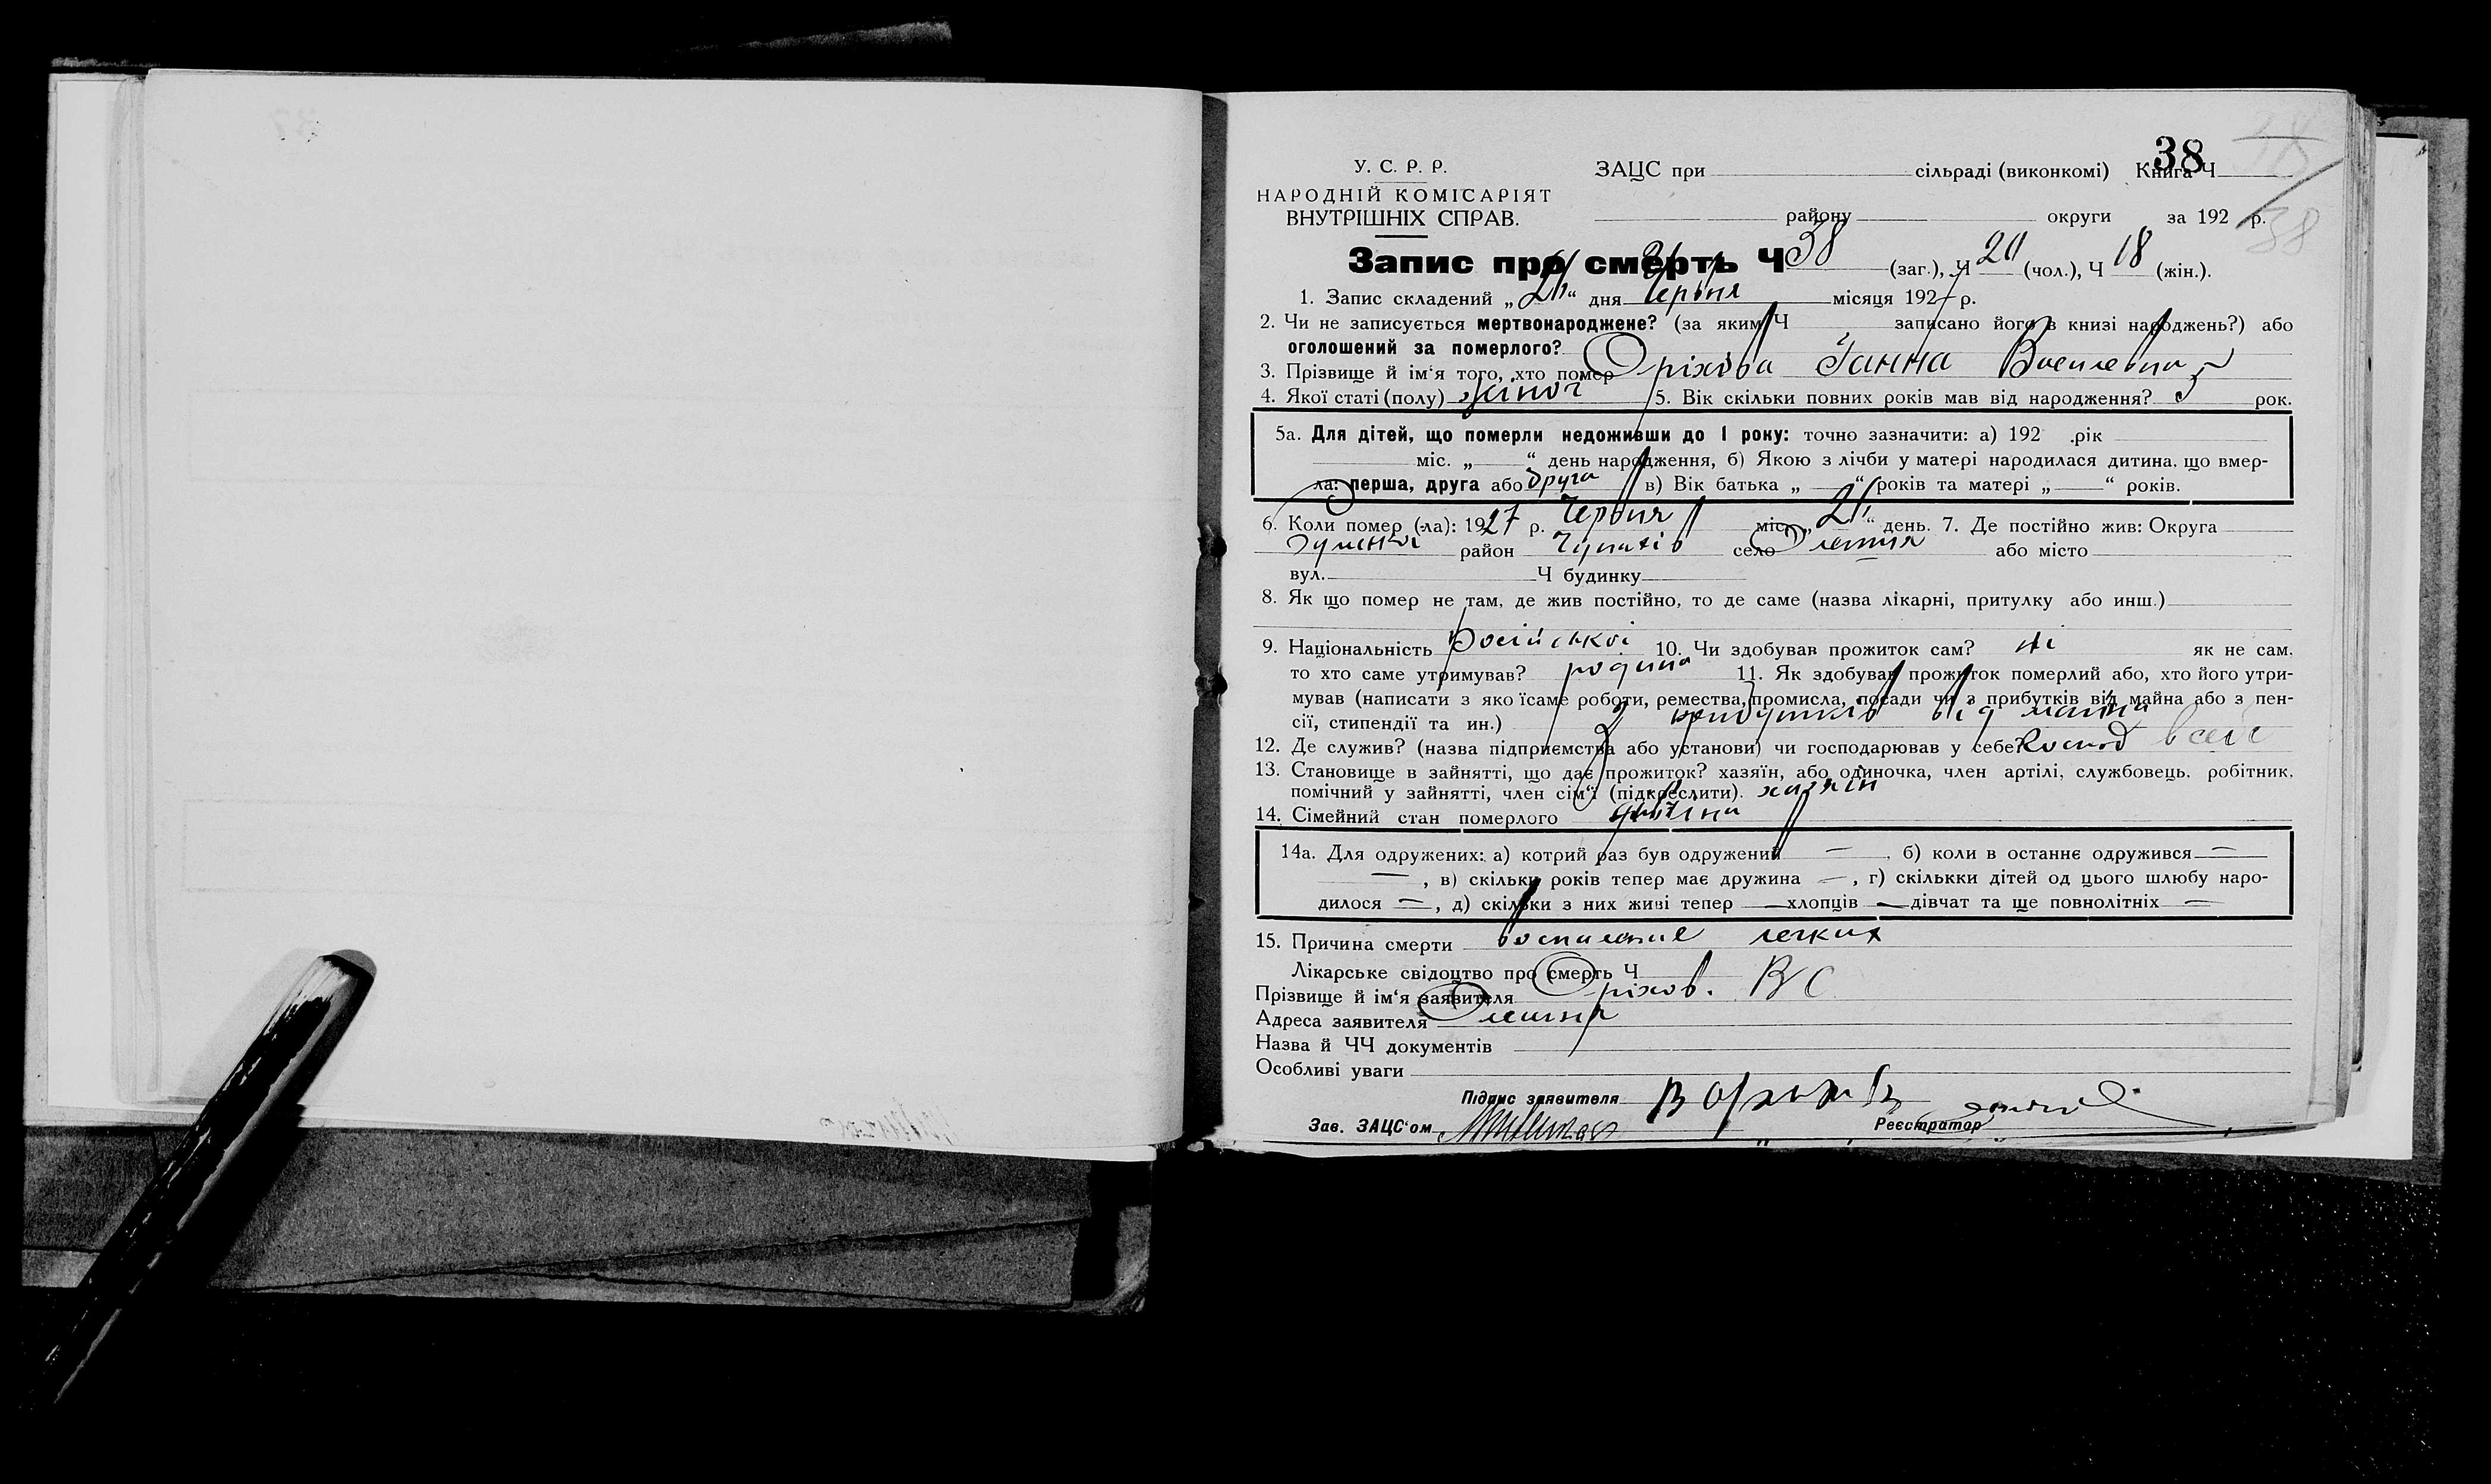 38
У. С. Р. Р.
НАРОДНІЙ КОМІСАРІЯТ
ВНУТРІШНІХ СПРАВ.
ЗАЦС при сільраді (виконкомі) Книга Ч
району округи за 192 р.
38
Запис про смерть Ч 38 (заг.), Ч 20 (чол.), Ч 18 (жін.).
1. Запис складений „21“ дня Червня місяця 1927 р.
2. Чи не записується мертвонароджене? (за яким Ч записано його в книзі народжень?) або
оголошений за померлого?
3. Прізвище й ім‘я того, хто помер Оріхова Ганна Василевна
4. Якої статі (полу) жіноч 5. Вік скільки повних років мав від народження? 5 рок.
5а. Для дітей, що померли недоживши до 1 року: точно зазначити: а) 192 .рік
міс. „ “ день народження, б) Якою з лічби у матері народилася дитина. що вмер-
ла: перша, друга або друга в) Вік батька „ “ років та матері „ “ років.
6. Коли помер (-ла): 1927 р. Червня міс. „21“ день. 7. Де постійно жив: Округа
район село або місто
вул. Ч будинку
8. Як що помер не там, де жив постійно, то де саме (назва лікарні, притулку або инш.)
9. Національність Російської 10. Чи здобував прожиток сам? ні як не сам,
то хто саме утримував? родина 11. Як здобував прожиток померлий або, хто його утри-
мував (написати з яко їсаме роботи, ремества, промисла, посади чи з прибутків від майна або з пен-
сії, стипендії та ин.) З прибутків від майна
12. Де служив? (назва підприємства або установи) чи господарював у себе?
13. Становище в зайнятті, що дає прожиток? хазяїн, або одиночка, член артілі, службовець, робітник,
помічний у зайнятті, член сім‘ї (підкреслити). хазяїн
14. Сімейний стан померлого дитина
14а. Для одружених: а) котрий раз був одружений — , б) коли в останнє одружився —
— , в) скільки років тепер має дружина — , г) скількки дітей од цього шлюбу наро-
дилося — , д) скільки з них живі тепер — хлопців — дівчат та ще повнолітніх —
15. Причина смерти воспаление легких
Лікарське свідоцтво про смерть Ч
Прізвище й ім‘я заявителя Оріхов. В С
Адреса заявителя
Назва й ЧЧ документів
Особливі уваги
Підпис заявителя
Зав. ЗАЦС‘ом Реєстратор